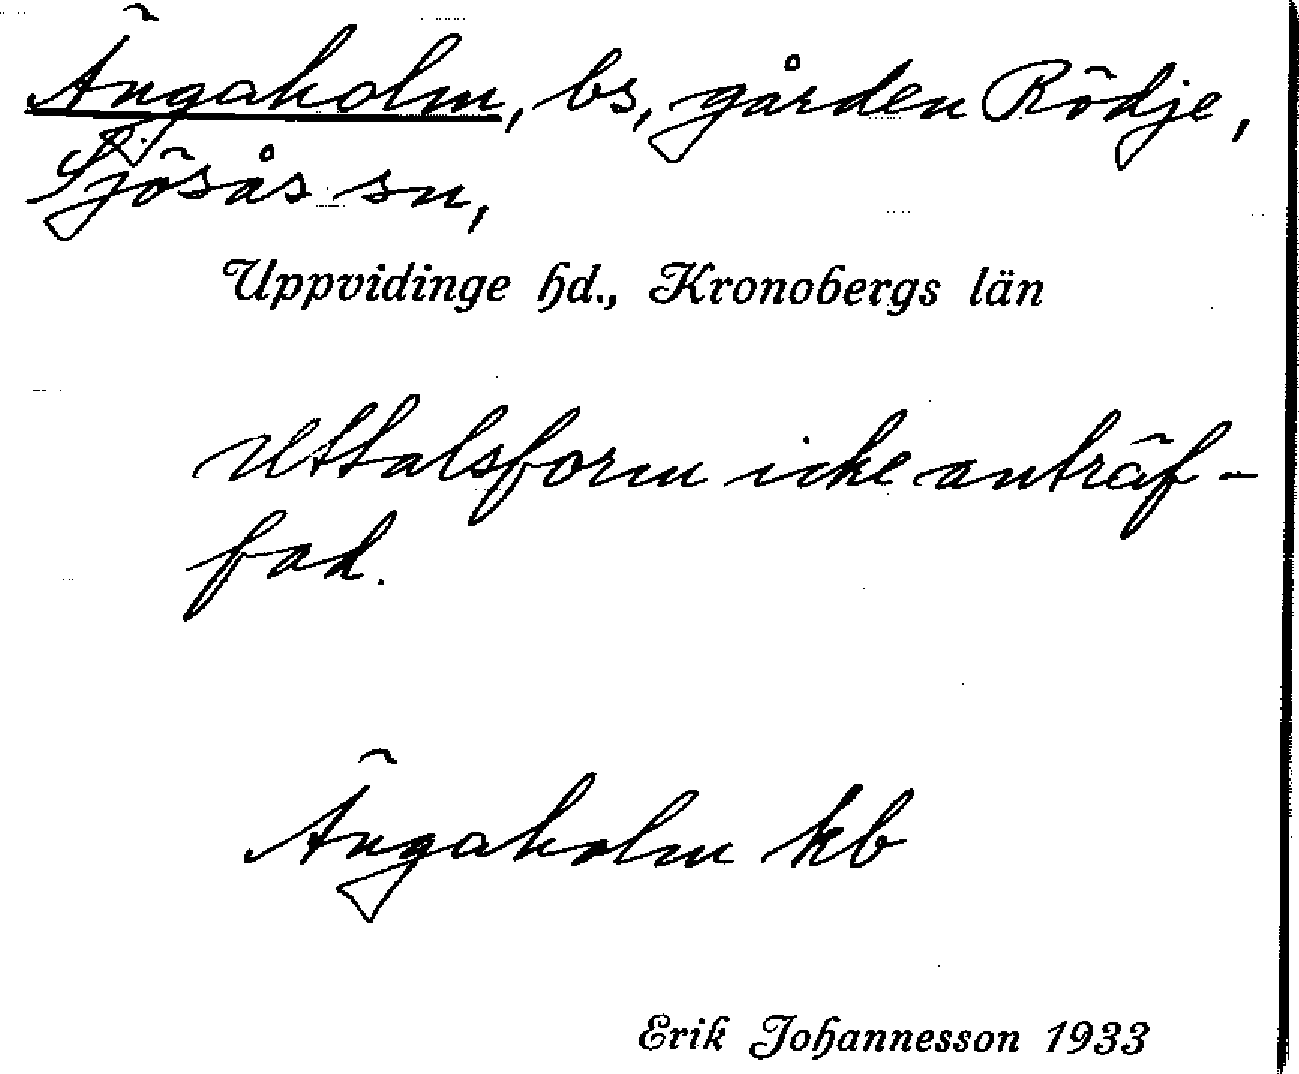 Ängaholm, bs, gården Rödje,
Sjösås sn,
Uppvidinge hd., Kronobergs län
Uttalsform icke anträf-
fad.
Ängaholm kb
Erik Johannesson 1933